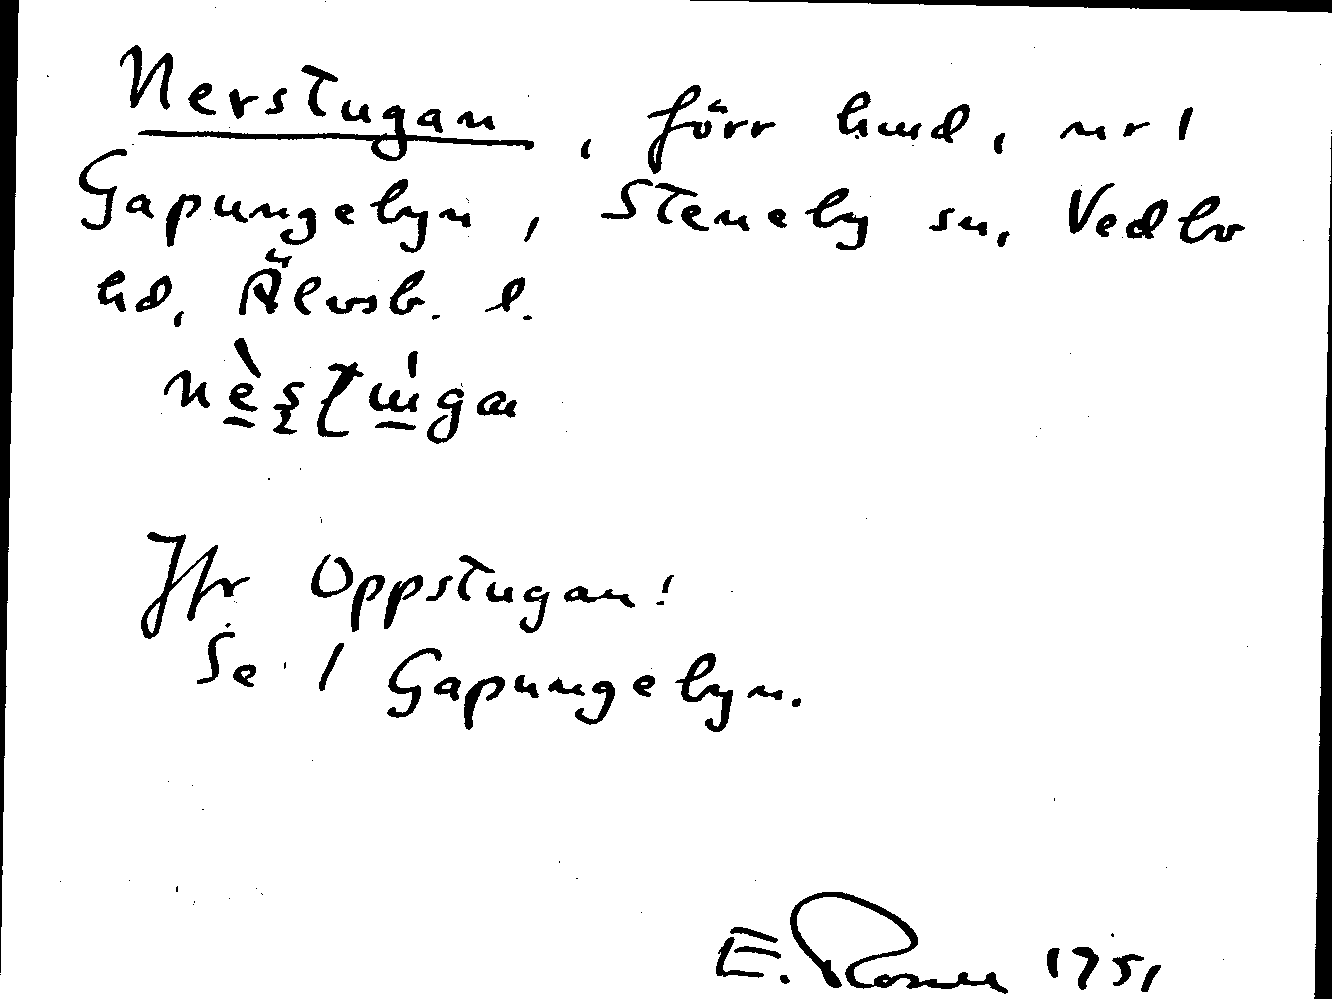 Nerstugan, förr hmd, nr 1
Gapungebyn, Steneby sn, Vedbo
hd, Älvsb. l.
Jfr Oppstugan!
Se 1 Gapungebyn.
E. Rosell 1951